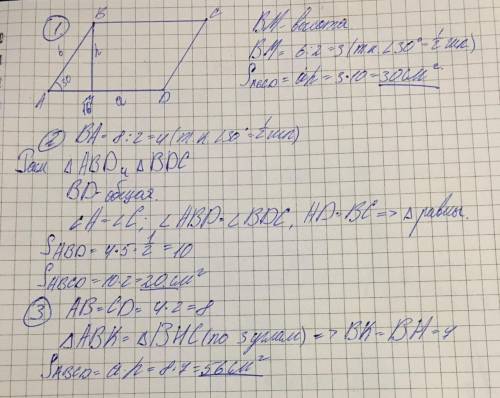 ① B C
6 h
A 30 M a D
BM - высота
BM = 6:2=3 (т.к. ∠30°=½ гип.)
S ABCD = ah = 3·10 = 30 см²
② BA = 8:2=4 (т.к. ∠30°=½ гип)
ΔABD и ΔBDC
BD - общая.
∠A=∠C, ∠ABD=∠BDC, AD=BC => Δ равны.
S ABD = 4·5·½ = 10
S ABCD = 10·2 = 20 см²
③ AB = CD = 4·2 = 8
ΔABK = ΔBHC (по 3 углам) => BK = BH = 7
S ABCD = ah = 8·7 = 56 см²